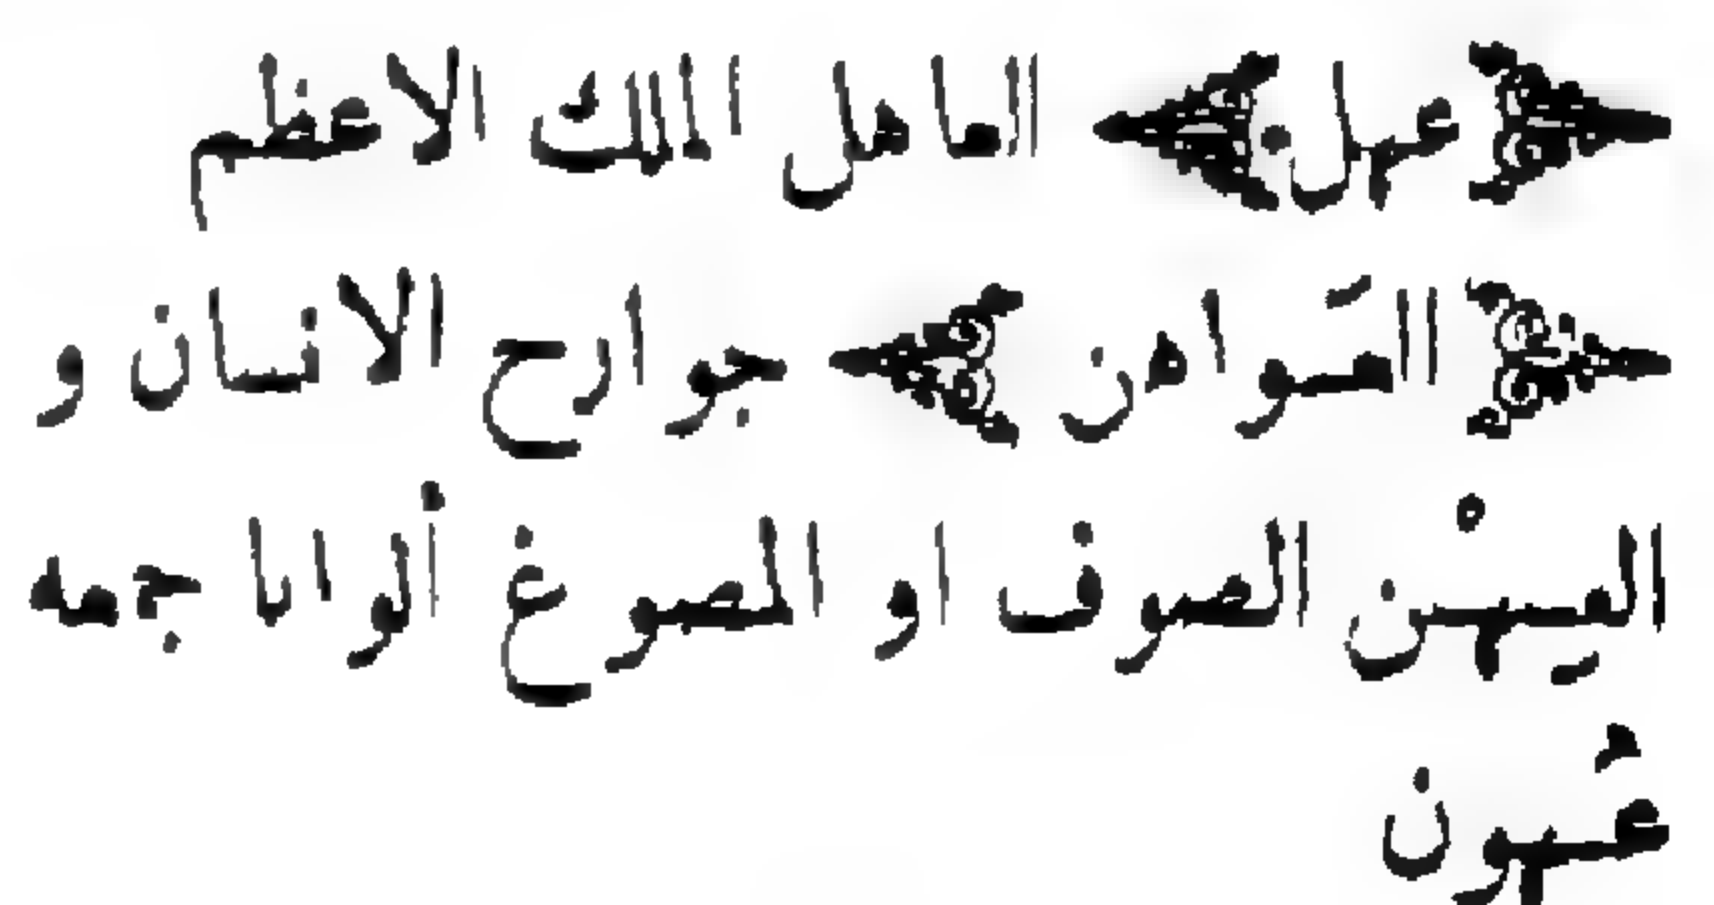 ﴿ عهل ﴾ العاهل الملك الاعظم
﴿ العَواهن ﴾ جوارح الانسان و
العِهْن الصوف او المصبوغ ألوانا جمعه
عُهون